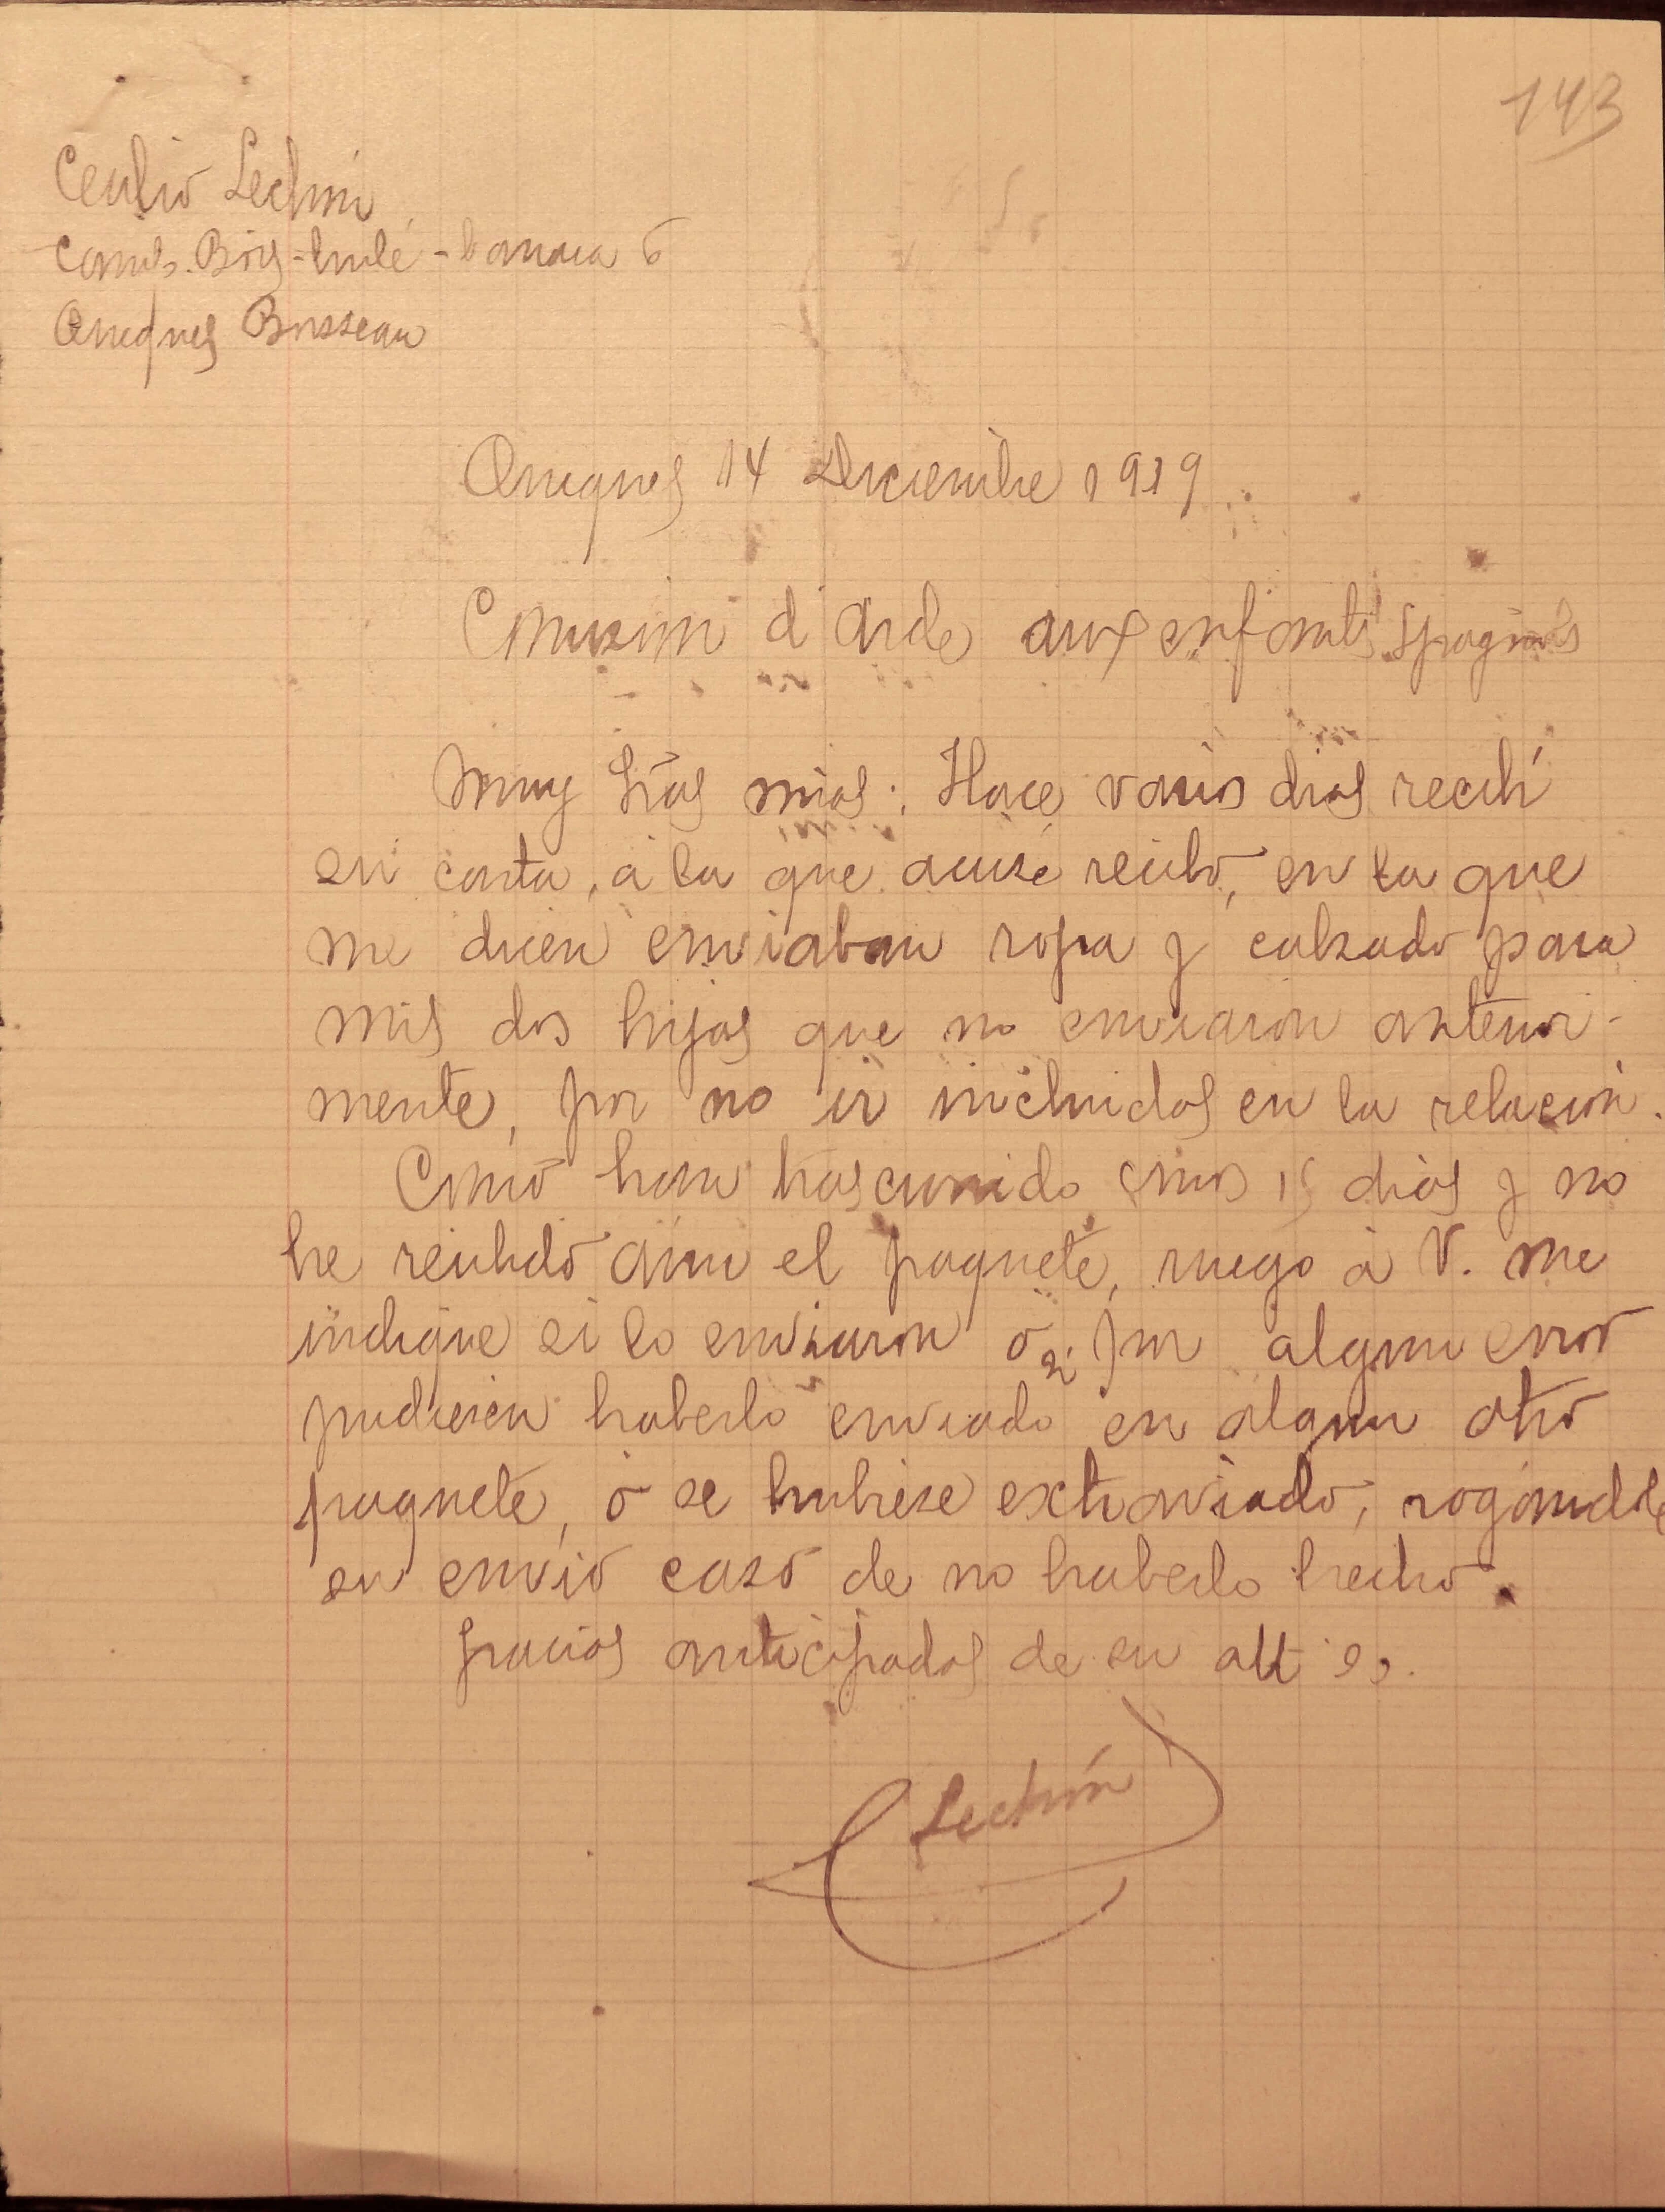 143
Cecilio Lechón
Camp. Bois-brulé - barraca 6
Bousseau
14 Diciembre 1939
Comision d'aide aux enfants Spagnols
Muy Sras mias: Hace varios dias recibí
su carta, a la que acusé recibo, en la que
me dicen enviaban ropa y calzado para
mis dos hijos que no enviaron anterior-
mente, por no ir incluidos en la relación.
Como han trascurrido unos 15 dias y no
he recibido aún el paquete, ruego á V. me
indique si lo enviaron o si por algun error
pudiesen haberlo enviado en algun otro
paquete, ó se hubiese extraviado, rogándole
su envio caso de no haberlo hecho.
Gracias anticipadas de su att s.s.
Lechón